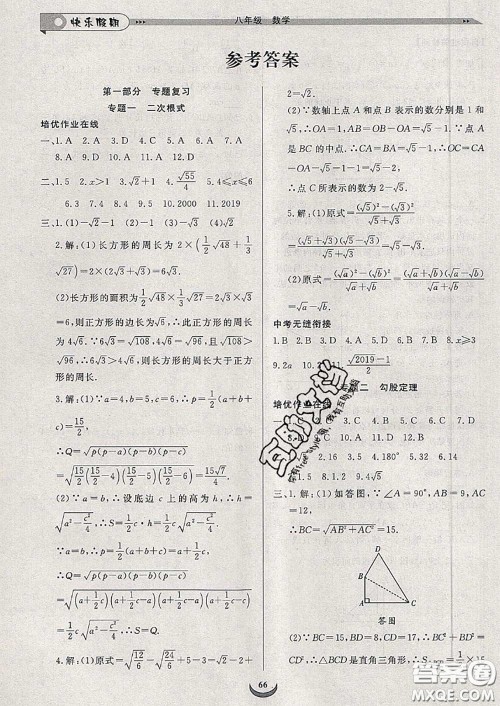 快乐假期
八年级 数学
参考答案
第一部分 专题复习
专题一 二次根式
培优作业在线
一、1.A 2.A 3.D 4.C 5.B 6.D
7.A 8.A 9.D 10.A
二、1.5 2.x>1 3.√2+1 4.√55/4 5.4≤x≤6
6.3 7.3 8.5 9.5 10.2000 11.2019
三、1.(1)-√2-1 (2)-1 (3)-√3 (4)√2
2.解:(1)长方形的周长为 2×(1/2√48+1/3
√27)=2×(2√3+√3)=6√3.
(2)长方形的面积为1/2√48×1/3√27=2√3×√3
=6,则正方形的边长为√6.∴此正方形的周长
为4√6.∵6√3=√108,4√6=√96,且√108>
√96,∴6√3>4√6,则长方形的周长大于正方
形的周长.
3.解:(1)∵p=1/2(a+b+c)=1/2(4+5+6)
=15/2,
∴Q=√p(p-a)(p-b)(p-c)
=√15/2(15/2-4)(15/2-5)(15/2-6)=15√7/4.
(2)∵a=b,∴设底边 c 上的高为 h,∴h=
√a²-c²/4,∴S=1/2c·h=1/2c√a²-c²/4.
∵a=b,∴p=1/2(a+b+c)=a+1/2c,
∴Q=√p(p-a)(p-b)(p-c)
=√(a+1/2c)(a+1/2c-a)(a+1/2c-a)(a+1/2c-c)
=1/2c√a²-c²/4.∴S=Q.
4.解:(1)原式=√12/6-√24/6+5-3=√2-2+
2=√2.
(2)∵数轴上点 A 和点 B 表示的数分别是 1 和
√5,∴OA=1,AB=√5-1,OB=√5.∵点
A 是 BC 的中点.∴CA=AB=√5-1.∴OC=CA
-OA=√5-1-1=√5-2.
∴点 C 所表示的数为 2-√5.
5.解:(1)原式=(√5)²-(√3)²/√5+√3
=(√5+√3)(√5-√3)/√5+√3=√5-√3.
(2)原式=(√a)²-(√b)²/√a+√b=(√a+√b)(√a-√b)/√a+√b
=√a-√b.
中考无缝衔接
1.B 2.B 3.D 4.C 5.B
8.x≥3
9.2a
√2019-1/2
二 勾股定理
培优作业在线
3.16 4.180° 5.132
6.1.5 8.1.2 9.4√5
三、1.解:(1)如答图,∵∠A=90°,AB=9,AC
=12,
∴BC=√AB²+AC²=15.
D
B
A
C
答图
(2)∵BC=15,BD=8,CD=17,∴BC²+BD²=
CD².∴△BCD 是直角三角形,
66